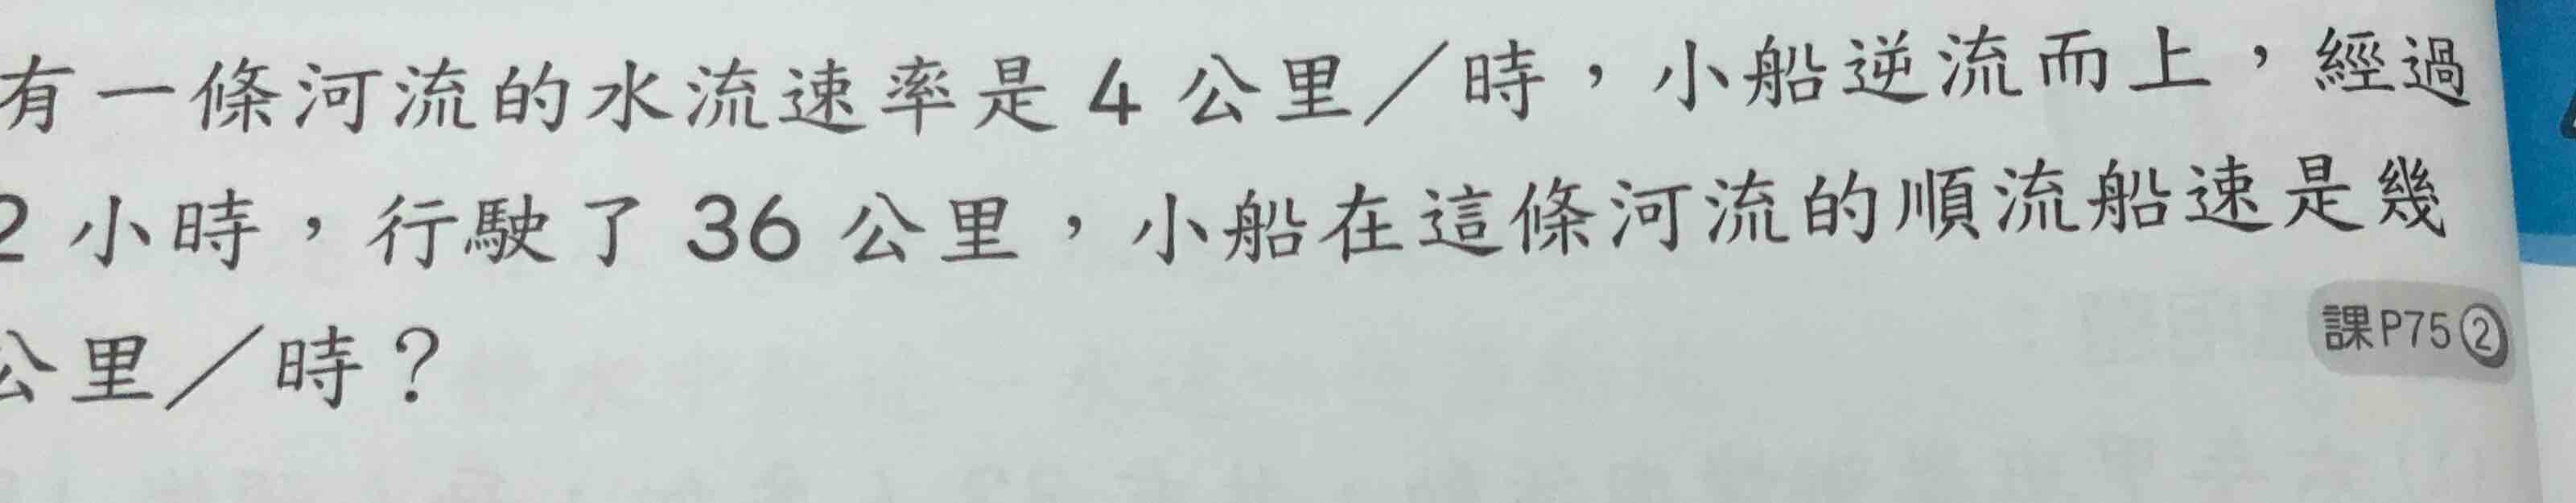 有一條河流的水流速率是4公里／時，小船逆流而上，經過
2小時，行駛了36公里，小船在這條河流的順流船速是幾
公里／時？
課P75②